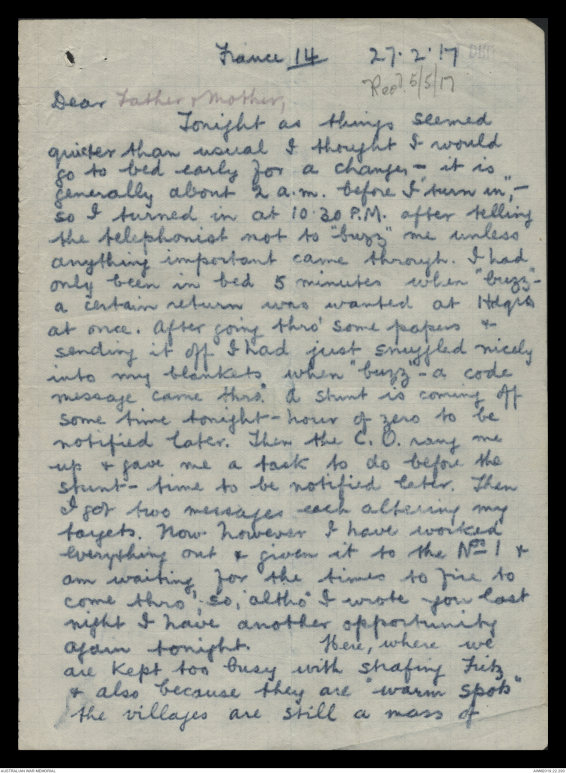 France 14 27.2.17
Recd 5/5/17
Dear Father & Mother,
Tonight as things seemed
quieter than usual I thought I would
go to bed early for a change - it is
generally about 2 a.m. before I "turn in", -
so I turned in at 10.30 P.M. after telling
the telephonist not to "buzz" me unless
anything important came through. I had
only been in bed 5 minutes when "buzz" -
a certain return was wanted at Hdqrs
at once. After going thro' some papers &
sending it off I had just snuggled nicely
into my blankets when "buzz - a code
message came thro'. A stunt is coming off
some time tonight - hour of zero to be
notified later. Then the C.O. rang me
up & gave me a task to do before the
stunt - time to be notified later. Then
I got two messages each altering my
targets. Now however I have worked
everything out & given it to the Nos 1 &
am waiting for the times to fire to
come thro', so, altho' I wrote you last
night I have another opportunity
again tonight. Here, where we
are kept too busy with strafing Fritz
& also because they are "warm spots"
the villages are still a mass of
AUSTRALIAN WAR MEMORIAL